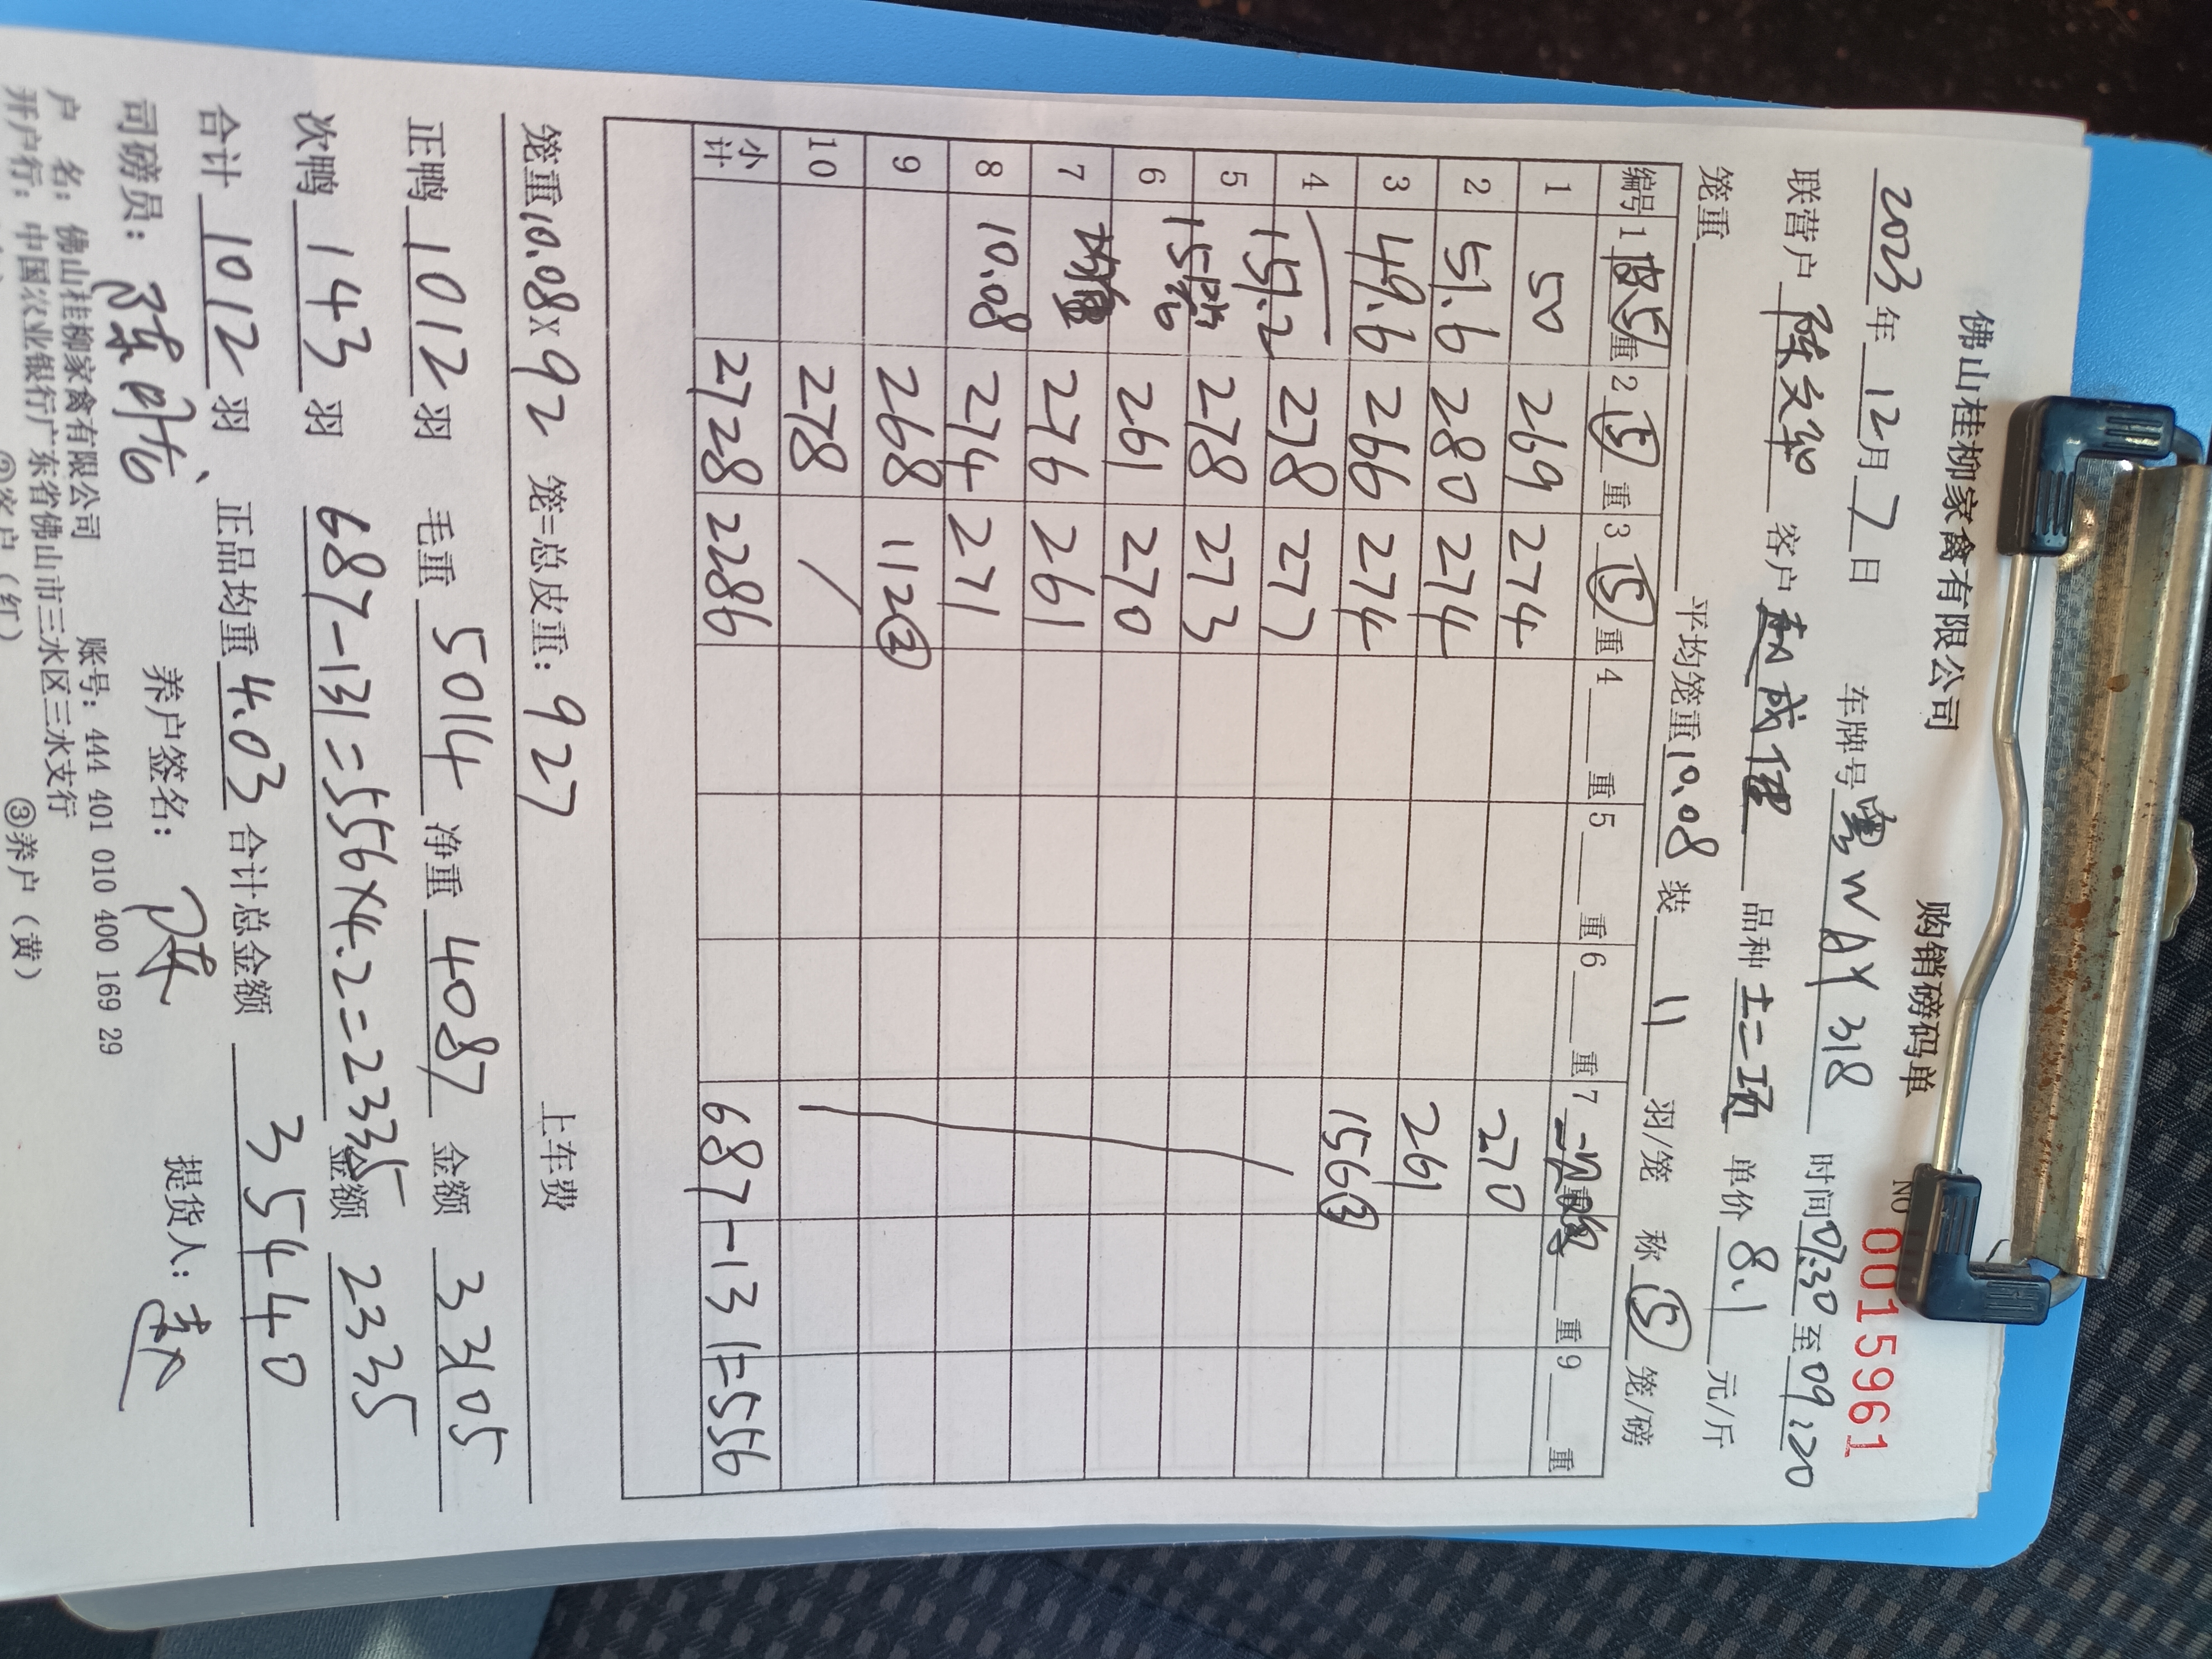 佛山桂柳家禽有限公司 购销磅码单 NO 0015961
2023年12月7日 车牌号粤WAY318 时间07:30至09:20
联营户陈文军 客户成佳 品种土二项 单价8.1元/斤
笼重 平均笼重10.08 装11羽/笼 称⑤笼/磅
编号 1皮⑤重 2⑤重 3⑤重 4重 5重 6重 7 重 9重
1 50 269 274
2 51.6 280 274 270
3 49.6 266 274 261
4 278 277 156③
5 151.2 278 273
6 15 261 270
7 均重 276 261
8 10.08 274 271
9 268 112②
10 278 /
小计 2728 2286 687-131=556
笼重10.08×92笼=总皮重：927 上车费
正鸭1012羽 毛重5014 净重4087 金额33105
次鸭143羽 687-131=556×4.2=2335 金额2335
合计1012羽、 正品均重4.03 合计总金额35440
司磅员： 养户签名：陈 提货人：
户 名：佛山桂柳家禽有限公司 账号：444 401 010 400 169 29
开户行：中国农业银行广东省佛山市三水区三水支行
②客户（红） ③养户（黄）